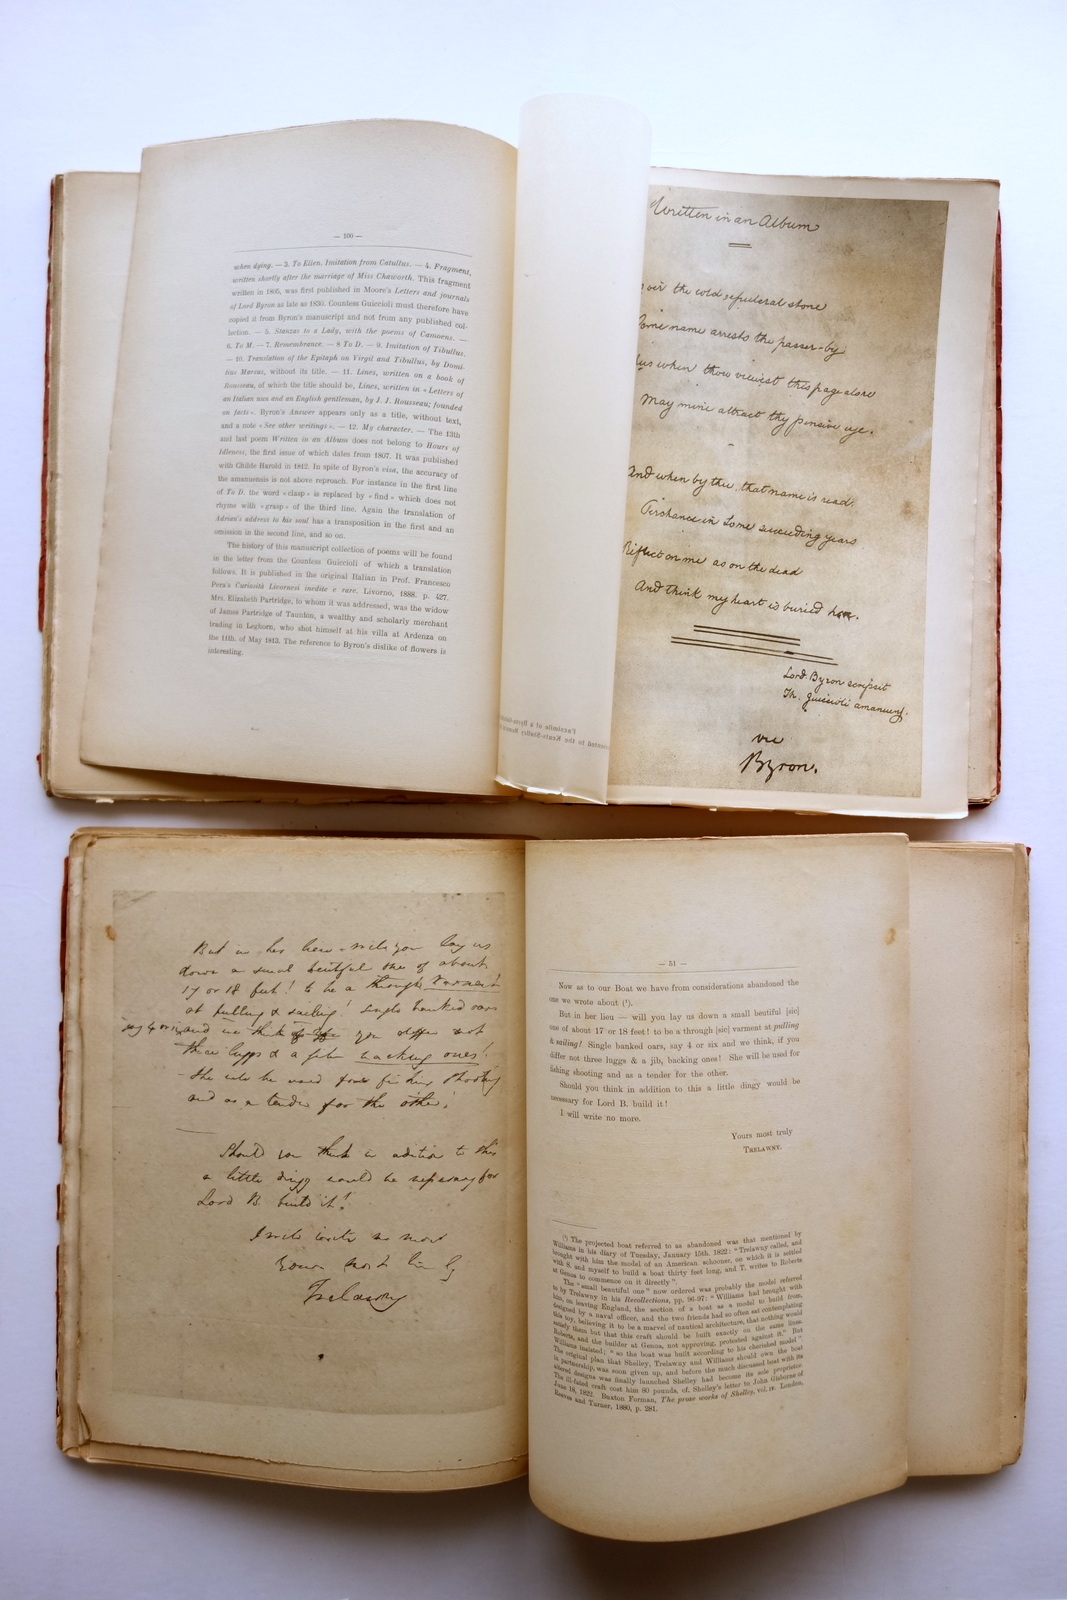 — 100 —
when dying. — 3. To Ellen. Imitation from Catullus. — 4. Fragment,
written shortly after the marriage of Miss Chaworth. This fragment
written in 1805, was first published in Moore's Letters and journals
of Lord Byron as late as 1830. Countess Guiccioli must therefore have
copied it from Byron's manuscript and not from any published col-
lection. — 5. Stanzas to a Lady, with the poems of Camoens. —
6. To M. — 7. Remembrance. — 8 To D. — 9. Imitation of Tibullus.
— 10. Translation of the Epitaph on Virgil and Tibullus, by Domi-
tius Marsus, without its title. — 11. Lines, written on a book of
Rousseau, of which the title should be, Lines, written in « Letters of
an Italian nun and an English gentleman, by J. J. Rousseau; founded
on facts ». Byron's Answer appears only as a title, without text,
and a note « See other writings ». — 12. My character. — The 13th
and last poem Written in an Album does not belong to Hours of
Idleness, the first issue of which dates from 1807. It was published
with Childe Harold in 1812. In spite of Byron's visa, the accuracy of
the amanuensis is not above reproach. For instance in the first line
of To D. the word « clasp » is replaced by « find » which does not
rhyme with « grasp » of the third line. Again the translation of
Adrian's address to his soul has a transposition in the first and an
omission in the second line, and so on.
The history of this manuscript collection of poems will be found
in the letter from the Countess Guiccioli of which a translation
follows. It is published in the original Italian in Prof. Francesco
Pera's Curiosità Livornesi inedite e rare. Livorno, 1888. p. 427.
Mrs. Elizabeth Partridge, to whom it was addressed, was the widow
of James Partridge of Taunton, a wealthy and scholarly merchant
trading in Leghorn, who shot himself at his villa at Ardenza on
the 11th. of May 1843. The reference to Byron's dislike of flowers is
interesting.
Facsimile of a Byron
to the Keats-Shelley
Written in an Album
o'er the cold sepulcral stone
Some name arrests the passer-by
when thou viewest this page alone
May mine attract thy pensive eye.
And when by thee that name is read
Perchance in some succeeding years
Reflect on me as on the dead
And think my heart is buried here.
Lord Byron scripsit
Th. Guiccioli amanuens.
vu
Byron.
But in her lieu - will you lay us
down a small beutiful one of about
17 or 18 feet! to be a through varment
at pulling & sailing! Single banked oars
say 4 or six and we think if you differ not
three luggs & a jib backing ones!
- She will be used for fishing shooting
and as a tender for the other.
Should you think in adition to this
a little dingy would be necessary for
Lord B. build it!
I will write no more
Yours most truly
Trelawny
— 51 —
Now as to our Boat we have from considerations abandoned the
one we wrote about (¹).
But in her lieu — will you lay us down a small beutiful [sic]
one of about 17 or 18 feet! to be a through [sic] varment at pulling
& sailing! Single banked oars, say 4 or six and we think, if you
differ not three luggs & a jib, backing ones! She will be used for
fishing shooting and as a tender for the other.
Should you think in addition to this a little dingy would be
necessary for Lord B. build it!
I will write no more.
Yours most truly
Trelawny.
(¹) The projected boat referred to as abandoned was that mentioned by
Williams in his diary of Tuesday, January 15th. 1822: "Trelawny called, and
brought with him the model of an American schooner, on which it is settled
with S. and myself to build a boat thirty feet long, and T. writes to Roberts
at Genoa to commence on it directly".
The "small beautiful one" now ordered was probably the model referred
to by Trelawny in his Recollections, pp. 96-97: "Williams had brought with
him, on leaving England, the section of a boat as a model to build from,
designed by a naval officer, and the two friends had so often set contemplating
this toy, believing it to be a marvel of nautical architecture, that nothing would
satisfy them but that this craft should be built exactly on the same lines.
Roberts, and the builder at Genoa, not approving, protested against it." But
Williams insisted; "so the boat was built according to his cherished model".
The original plan that Shelley, Trelawny and Williams should own the boat
in partnership, was soon given up, and before the much discussed boat with its
altered designs was finally launched Shelley had become its sole proprietor.
The ill-fated craft cost him 80 pounds, cf. Shelley's letter to John Gisborne of
June 18, 1822. Buxton Forman, The prose works of Shelley, vol. IV. London,
Reeves and Turner, 1880, p. 281.